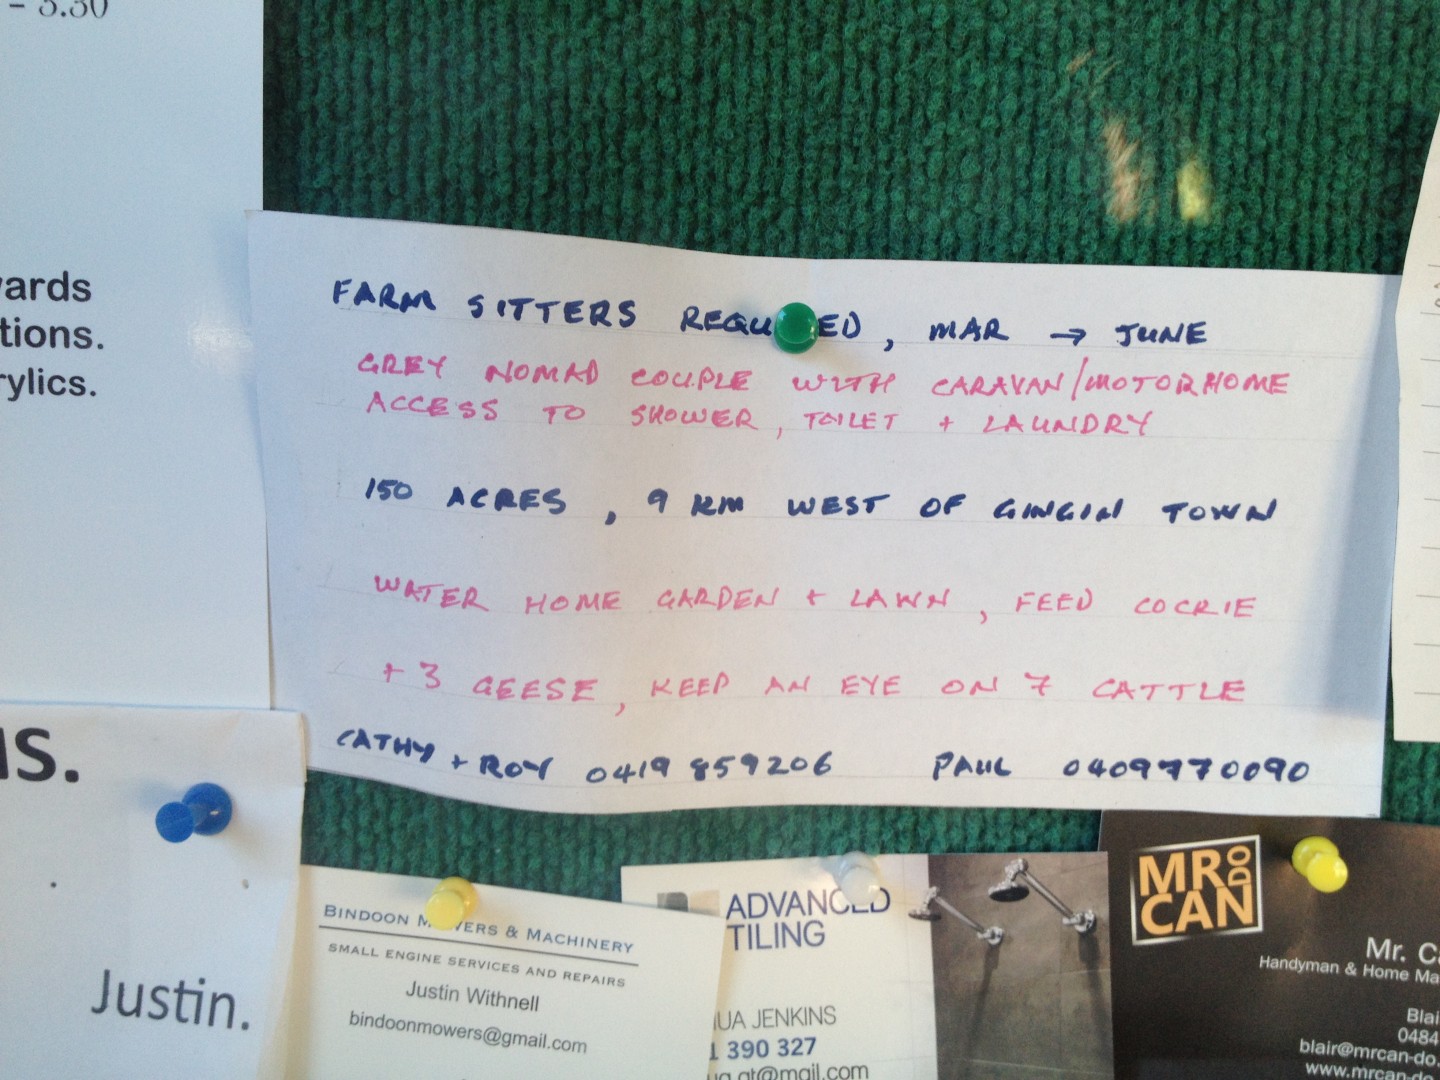 - 5.30
FARM SITTERS REQUIRED, MAR → JUNE
GREY NOMAD COUPLE WITH CARAVAN/MOTORHOME
ACCESS TO SHOWER, TOILET + LAUNDRY
150 ACRES, 9 KM WEST OF GINGIN TOWN
WATER HOME GARDEN + LAWN, FEED COCKIE
+ 3 GEESE, KEEP AN EYE ON 7 CATTLE
CATHY + ROY 0419 859206 PAUL 0409770090
tions.
Justin.
BINDOON MOWERS & MACHINERY
SMALL ENGINE SERVICES AND REPAIRS
Justin Withnell
bindoonmowers@gmail.com
ADVANCED
TILING
JENKINS
390 327
MR DO
CAN
Mr.
Handyman & Home
0484
blair@mrcan-do.
www.mrcan-do.